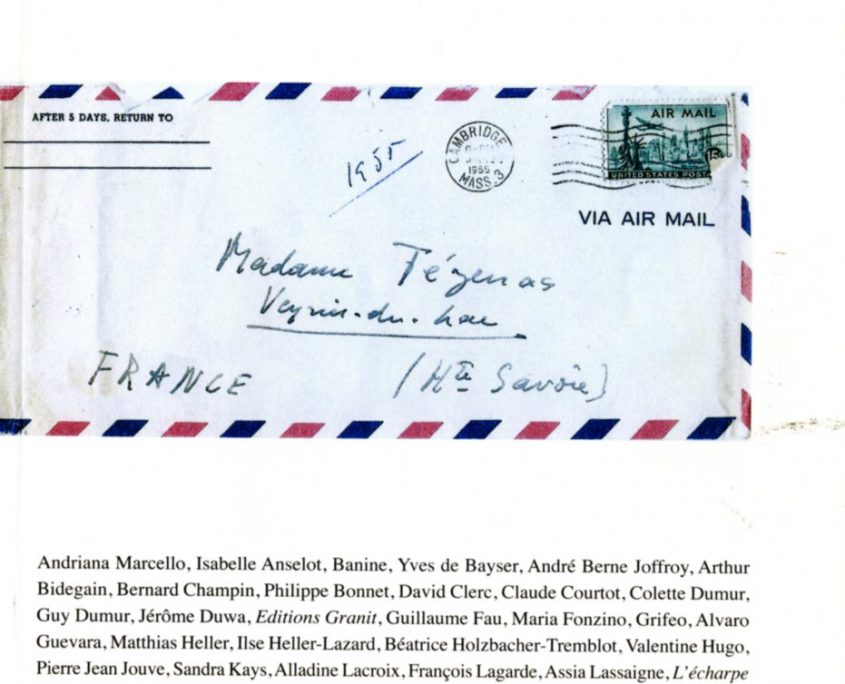 AFTER 5 DAYS, RETURN TO
1955
CAMBRIDGE
1955
MASS. 3
AIR MAIL
15¢
UNITED STATES POSTAGE
VIA AIR MAIL
Madame Tézenas
Veyrier-du-Lac
FRANCE (Hte Savoie)
Andriana Marcello, Isabelle Anselot, Banine, Yves de Bayser, André Berne Joffroy, Arthur
Bidegain, Bernard Champin, Philippe Bonnet, David Clerc, Claude Courtot, Colette Dumur,
Guy Dumur, Jérôme Duwa, Editions Granit, Guillaume Fau, Maria Fonzino, Grifeo, Alvaro
Guevara, Matthias Heller, Ilse Heller-Lazard, Béatrice Holzbacher-Tremblot, Valentine Hugo,
Pierre Jean Jouve, Sandra Kays, Alladine Lacroix, François Lagarde, Assia Lassaigne, L'écharpe